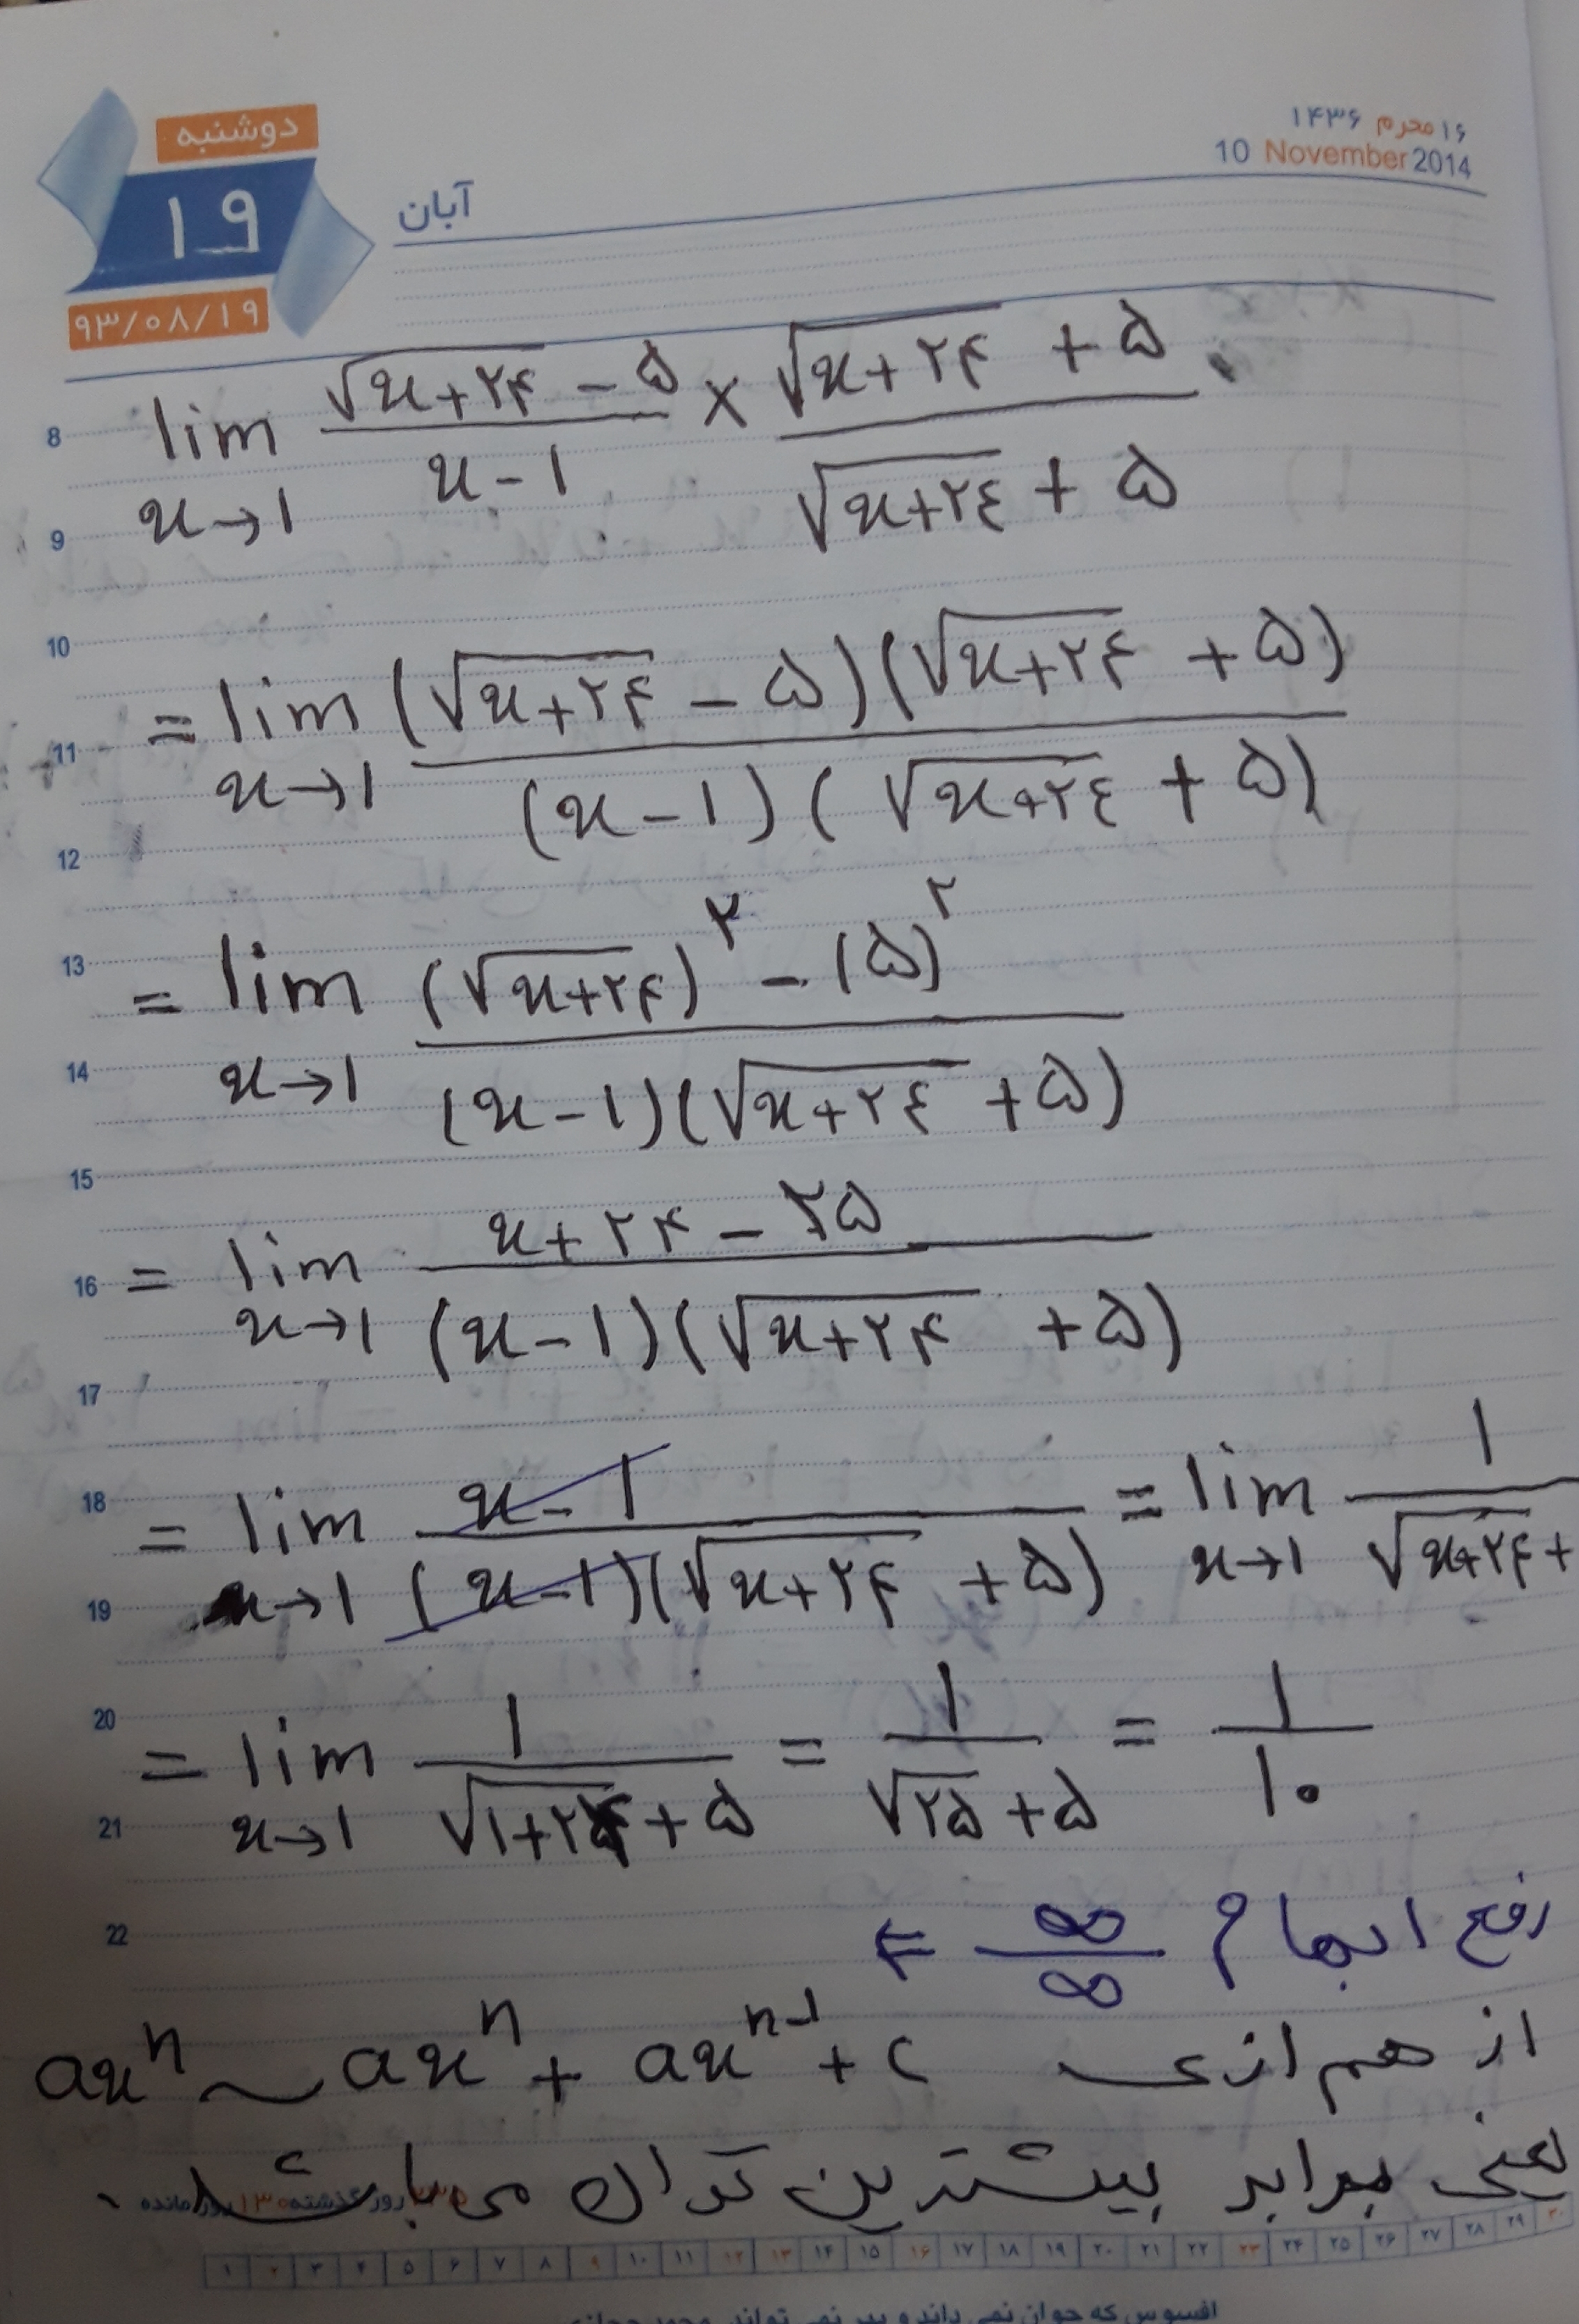 دوشنبه
۱۹
۹۳/۰۸/۱۹
آبان
۱۶ محرم ۱۴۳۶
10 November 2014
lim x→۱ (√(x+۲۴) − ۵)/(x−۱) × (√(x+۲۴) + ۵)/(√(x+۲۴) + ۵)
= lim x→۱ ((√(x+۲۴) − ۵)(√(x+۲۴) + ۵))/((x−۱)(√(x+۲۴) + ۵))
= lim x→۱ ((√(x+۲۴))^۲ − (۵)^۲)/((x−۱)(√(x+۲۴) + ۵))
= lim x→۱ (x+۲۴ − ۲۵)/((x−۱)(√(x+۲۴) + ۵))
= lim x→۱ (x−۱)/((x−۱)(√(x+۲۴) + ۵)) = lim x→۱ ۱/(√(x+۲۴) +
= lim x→۱ ۱/(√(۱+۲۴) + ۵) = ۱/(√۲۵ + ۵) = ۱/۱۰
رفع ابهام ∞/∞ ⇐
از هم ارزی ax^n ~ ax^n + ax^(n-1) + c
یعنی برابر بیشترین توان می باشد.
8
9
10
11
12
13
14
15
16
17
18
19
20
21
22
روز گذشته ۱۳۰ روز مانده
۱ ۲ ۳ ۴ ۵ ۶ ۷ ۸ ۹ ۱۰ ۱۱ ۱۲ ۱۳ ۱۴ ۱۵ ۱۶ ۱۷ ۱۸ ۱۹ ۲۰ ۲۱ ۲۲ ۲۳ ۲۴ ۲۵ ۲۶ ۲۷ ۲۸ ۲۹ ۳۰
افسوس که جوان نمی داند و پیر نمی تواند.